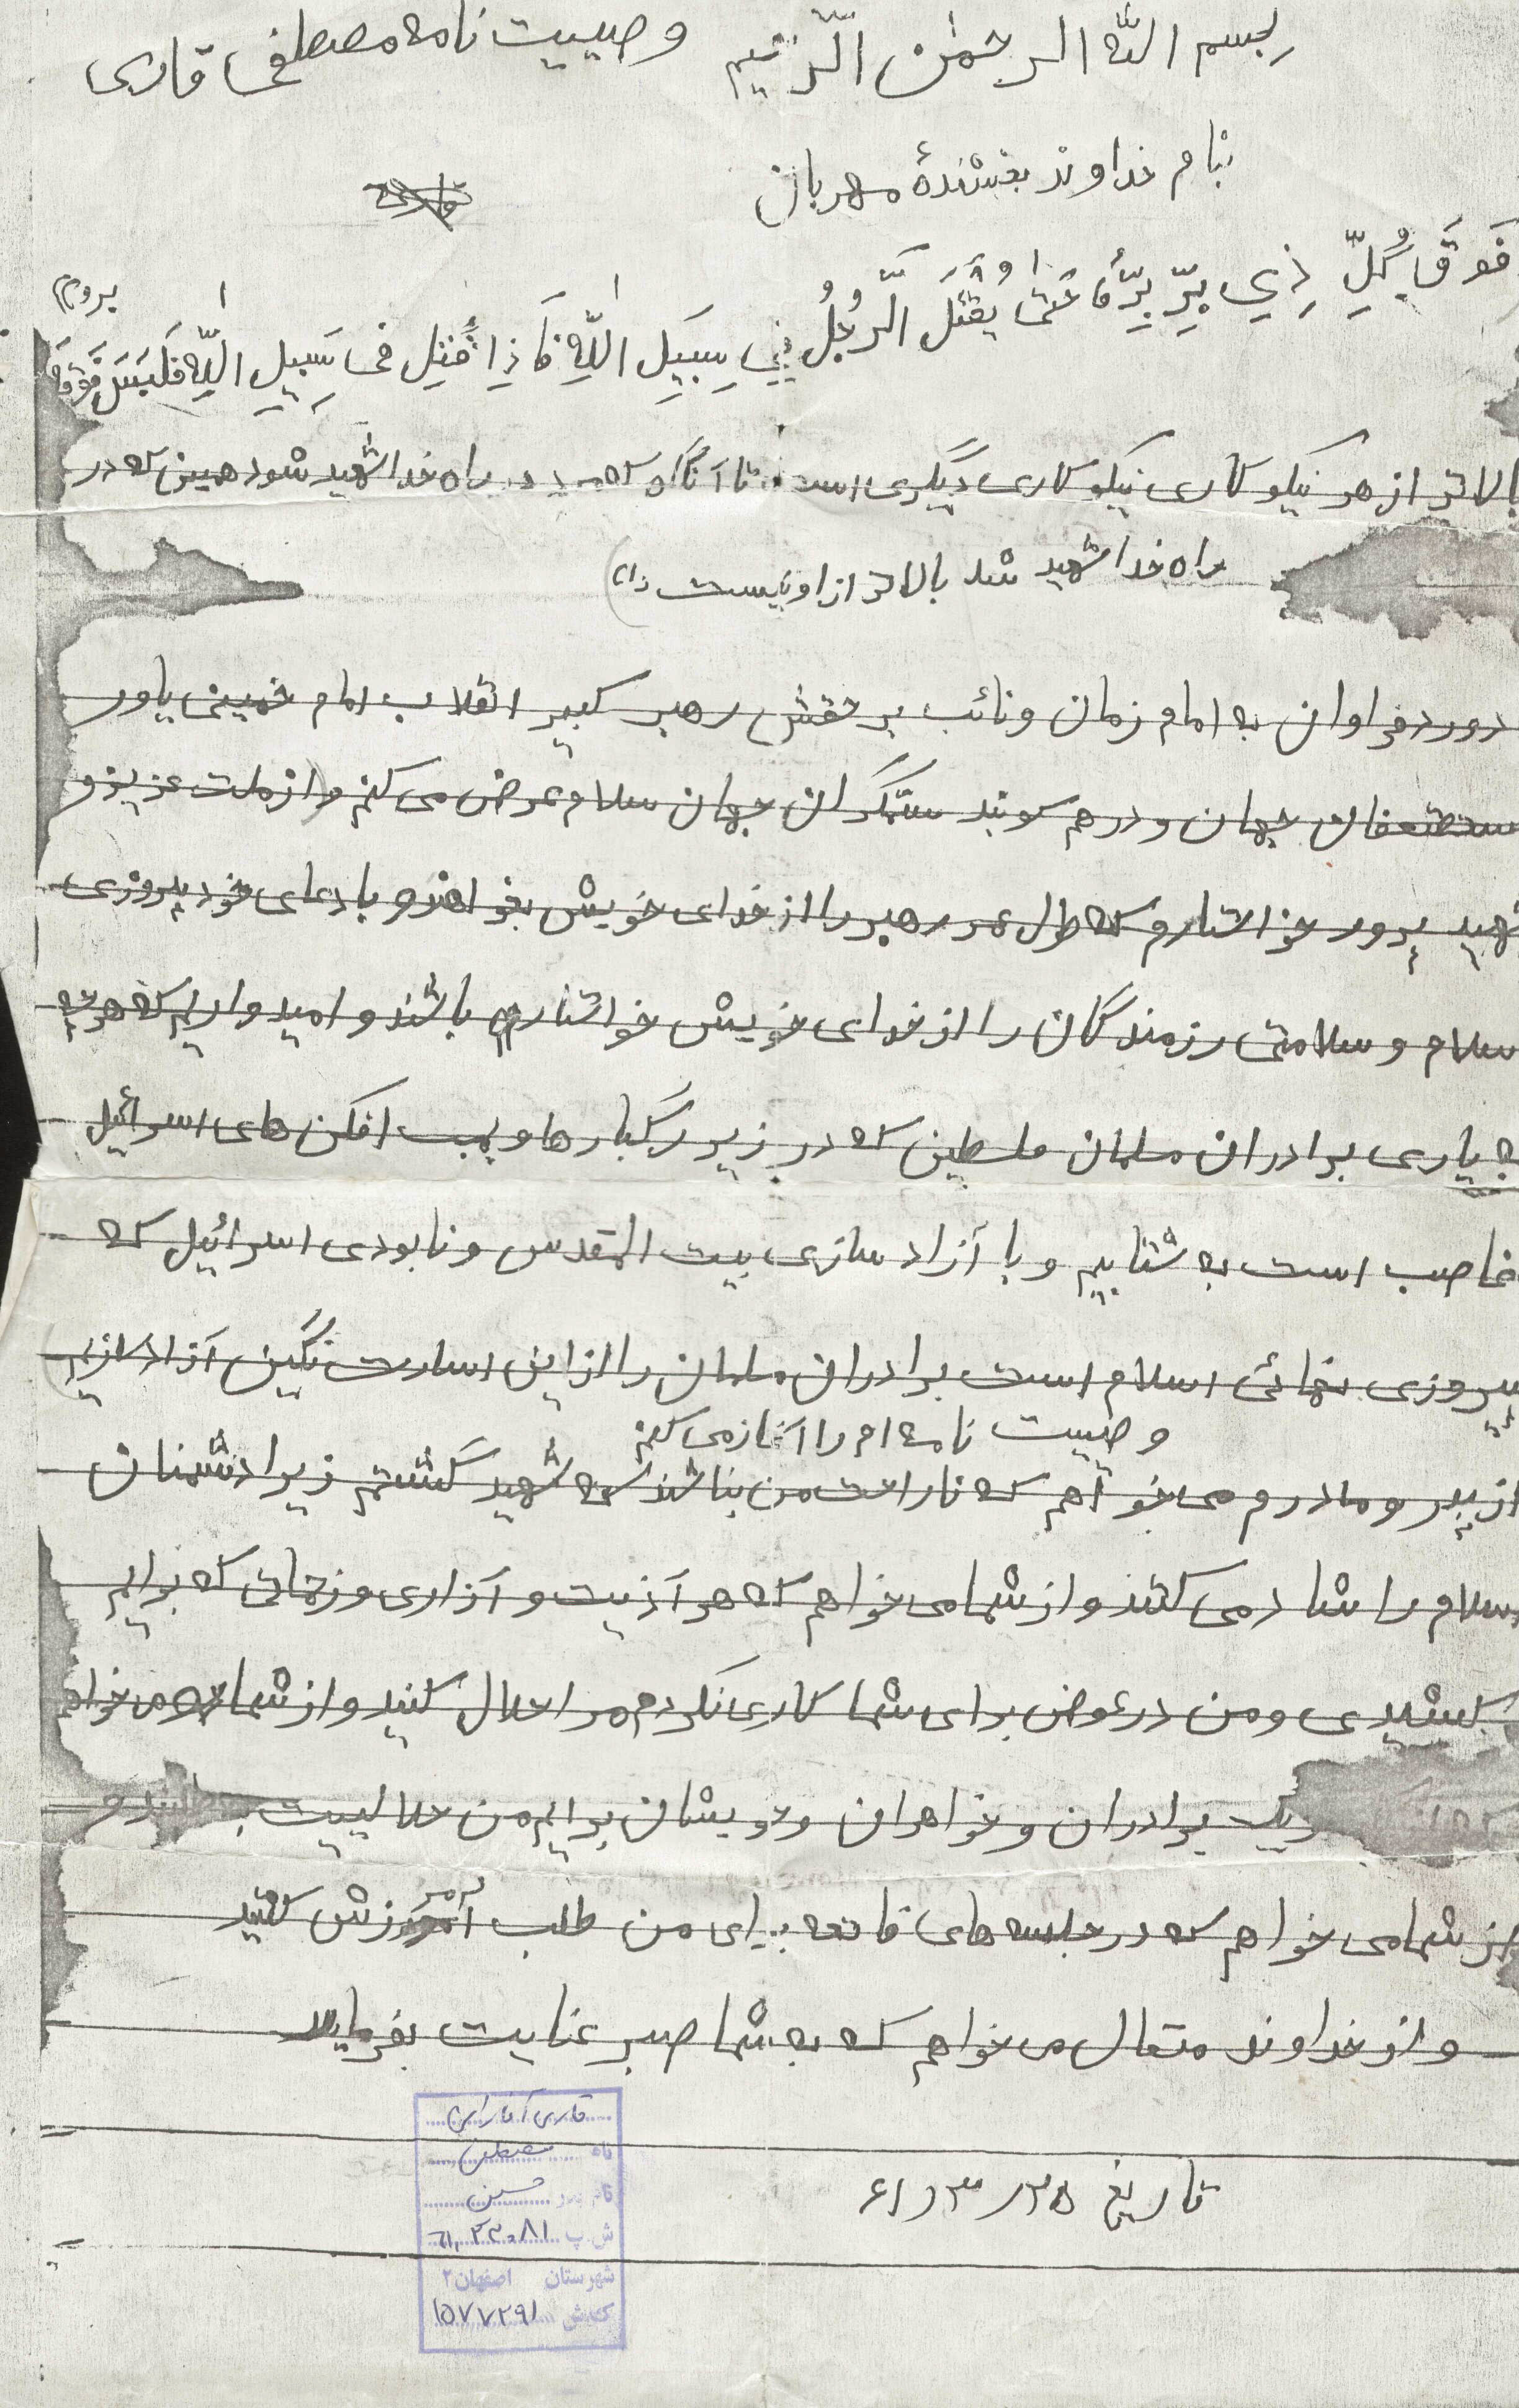 بسم اللّه الرحمٰن الرّحیم وصییت نامه مصطفی قاری
بنام خداوند بخشندهٔ مهربان
فَوقَ کُلِّ ذِي بِرٍّ بِرٌّ حَتّیٰ یُقْتَلَ الَّرجُلُ فِي سَبیِلِ اللّهِ فَاذِا قُتِلَ فی سَبِیلِ اللّهِ فَلَیَسَ فَوْقَهُ
بروی
بالاتر از هر نیکو کاری نیکو کاری دیگری است تا آنگاه که مرد در راه خدا شهید شود همین که در
راه خدا شهید شد بالاتر از او نیست (۱)
درود فراوان به امام زمان و نائب بر حقش رهبر کبیر انقلاب امام خمینی یاور
مستضعفان جهان و درهم کوبند ستمگران جهان سلام عرض می کنم و از ملت عزیز و
شهید پرور خواستارم که طول عمر رهبر را از خدای خویش بخواهند و با دعای خود پیروزی
سلام و سلامتی رزمندگان را از خدای خویش خواستار باشند و امیدواریم که هر چه
به یاری برادران مسلمان فلسطین که در زیر رگبارها و بمب افکن های اسرائیل
غاصب است به شتابیم و با آزاد سازی بیت المقدس و نابودی اسرائیل که
پیروزی نهائی اسلام است برادران مسلمان را از این اسارت ننگین آزاد سازیم
وصییت نامه ام را آغاز می کنم
از پدر و مادرم می خواهم که ناراحت من نباشند که شهید گشتم زیرا دشمنان
اسلام را شاد می کنند و از شما می خواهم که هر آذیت و آزاری و زحماتی که برایم
کشیدی و من در عوض برای شما کاری نکردم مرا حلال کنید و از شما می خواهم
که از یک یک برادران و خواهران و خویشان برایم من حلالییت بطلبند و
از شما می خواهم که در جلسه های فاتحه برای من طلب آمرزش کنید
و از خداوند متعال می خواهم که به شما صبر عنایت بفرماید
تاریخ ۶۱/۳/۲۵
قاری آغارابی
نام مصطفی
نام پدر حسین
ش پ ۶۱٫۲۲۰۸۱
شهرستان اصفهان ۲
کدش ۱۵۷۷۲۹۱